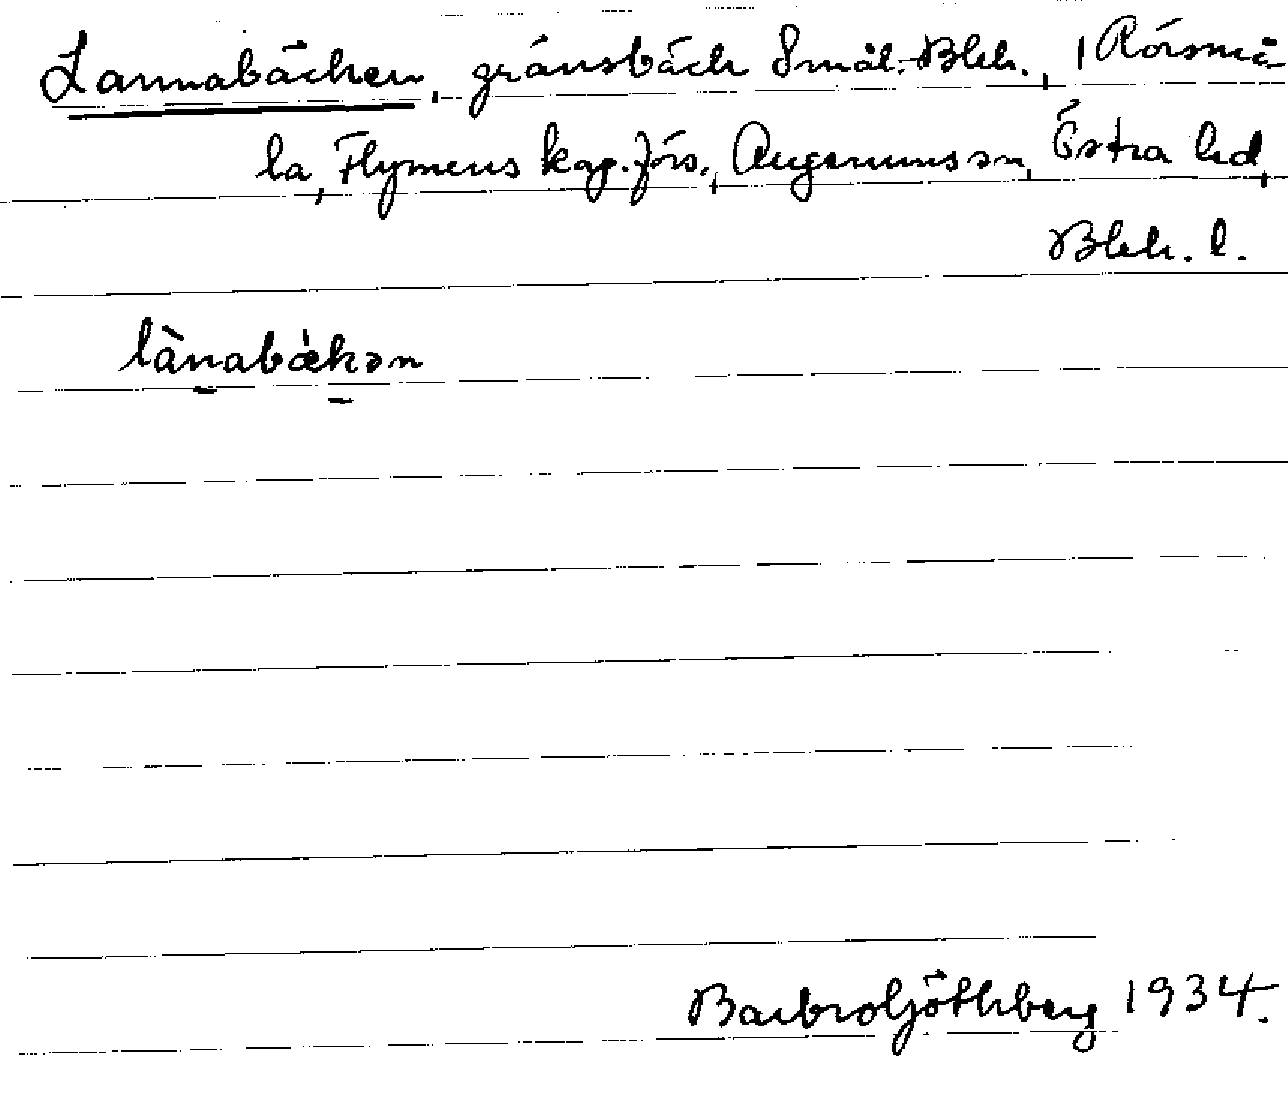 Lannabäcken, gränsbäck Smål.-Blek., i Rörsmå-
la, Flymens kap.förs., Augerums sn, Östra hd,
Blek. l.
lànabækən
Barbro Göthberg 1934.